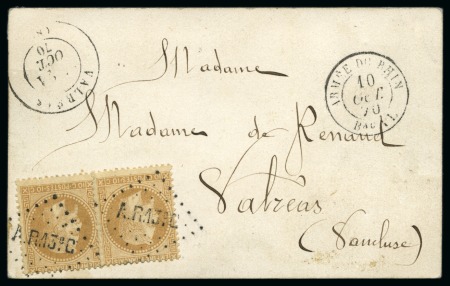 VALREAS
OCT.
70
ARMÉE DU RHIN
10
OCT.
70
Madame
Madame de Renaud
Valréas
(Vaucluse)
A.R.A.3e.C
A.R.A.3e.C